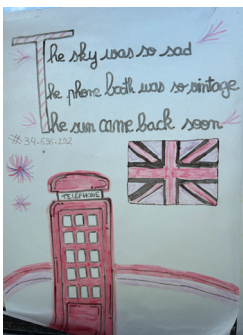 The sky was so sad
The phone booth was so vintage
The sun came back soon
#34.636.232
TELEPHONE